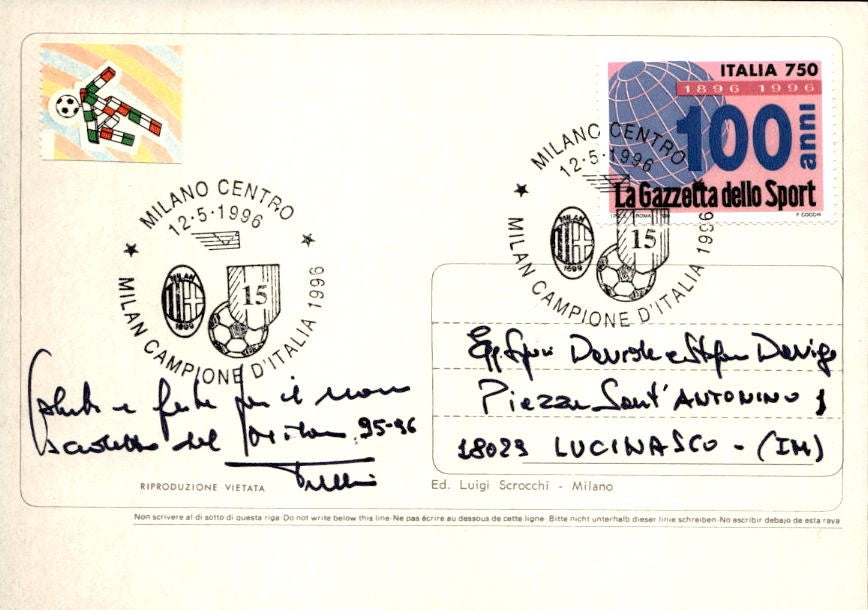 ITALIA 750
1896 1996
100 anni
La Gazzetta dello Sport
I.P.Z.S. ROMA
F. COCCHI
MILANO CENTRO
12·5·1996
MILAN
1899
15
MILAN CAMPIONE D'ITALIA 1996
MILANO CENTRO
12·5·1996
MILAN
1899
15
MILAN CAMPIONE D'ITALIA 1996
Saluti e feste per il nuovo
scudetto del Milan 95-96
Egg. Sigri Davide e Stefano
Piazza Sant'ANTONINO 1
18023 LUCINASCO - (IM)
RIPRODUZIONE VIETATA
Ed. Luigi Scrocchi - Milano
Non scrivere al di sotto di questa riga·Do not write below this line·Ne pas écrire au dessous de cette ligne·Bitte nicht unterhalb dieser linie schreiben·No escribir debajo de esta raya